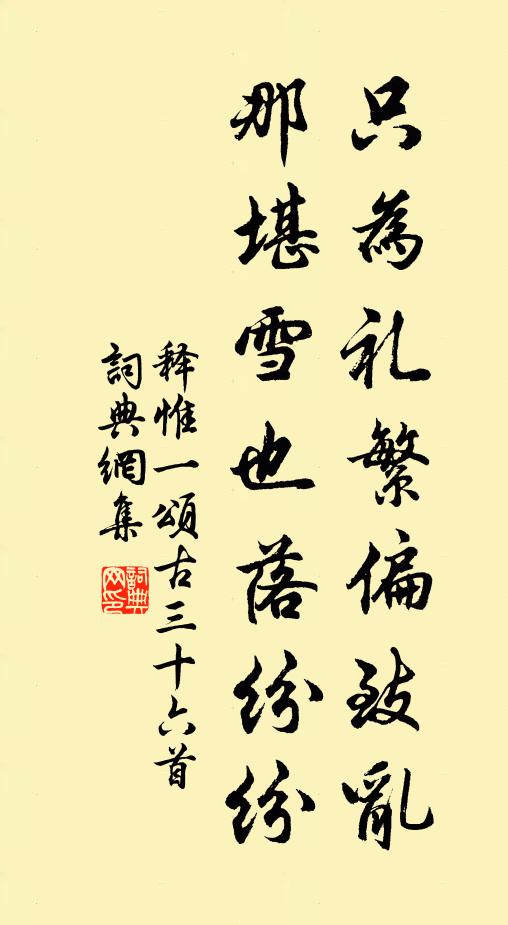 只為礼繁偏致亂
那堪雪也落紛紛
释惟一頌古三十六首
詞典網集
詞典网印